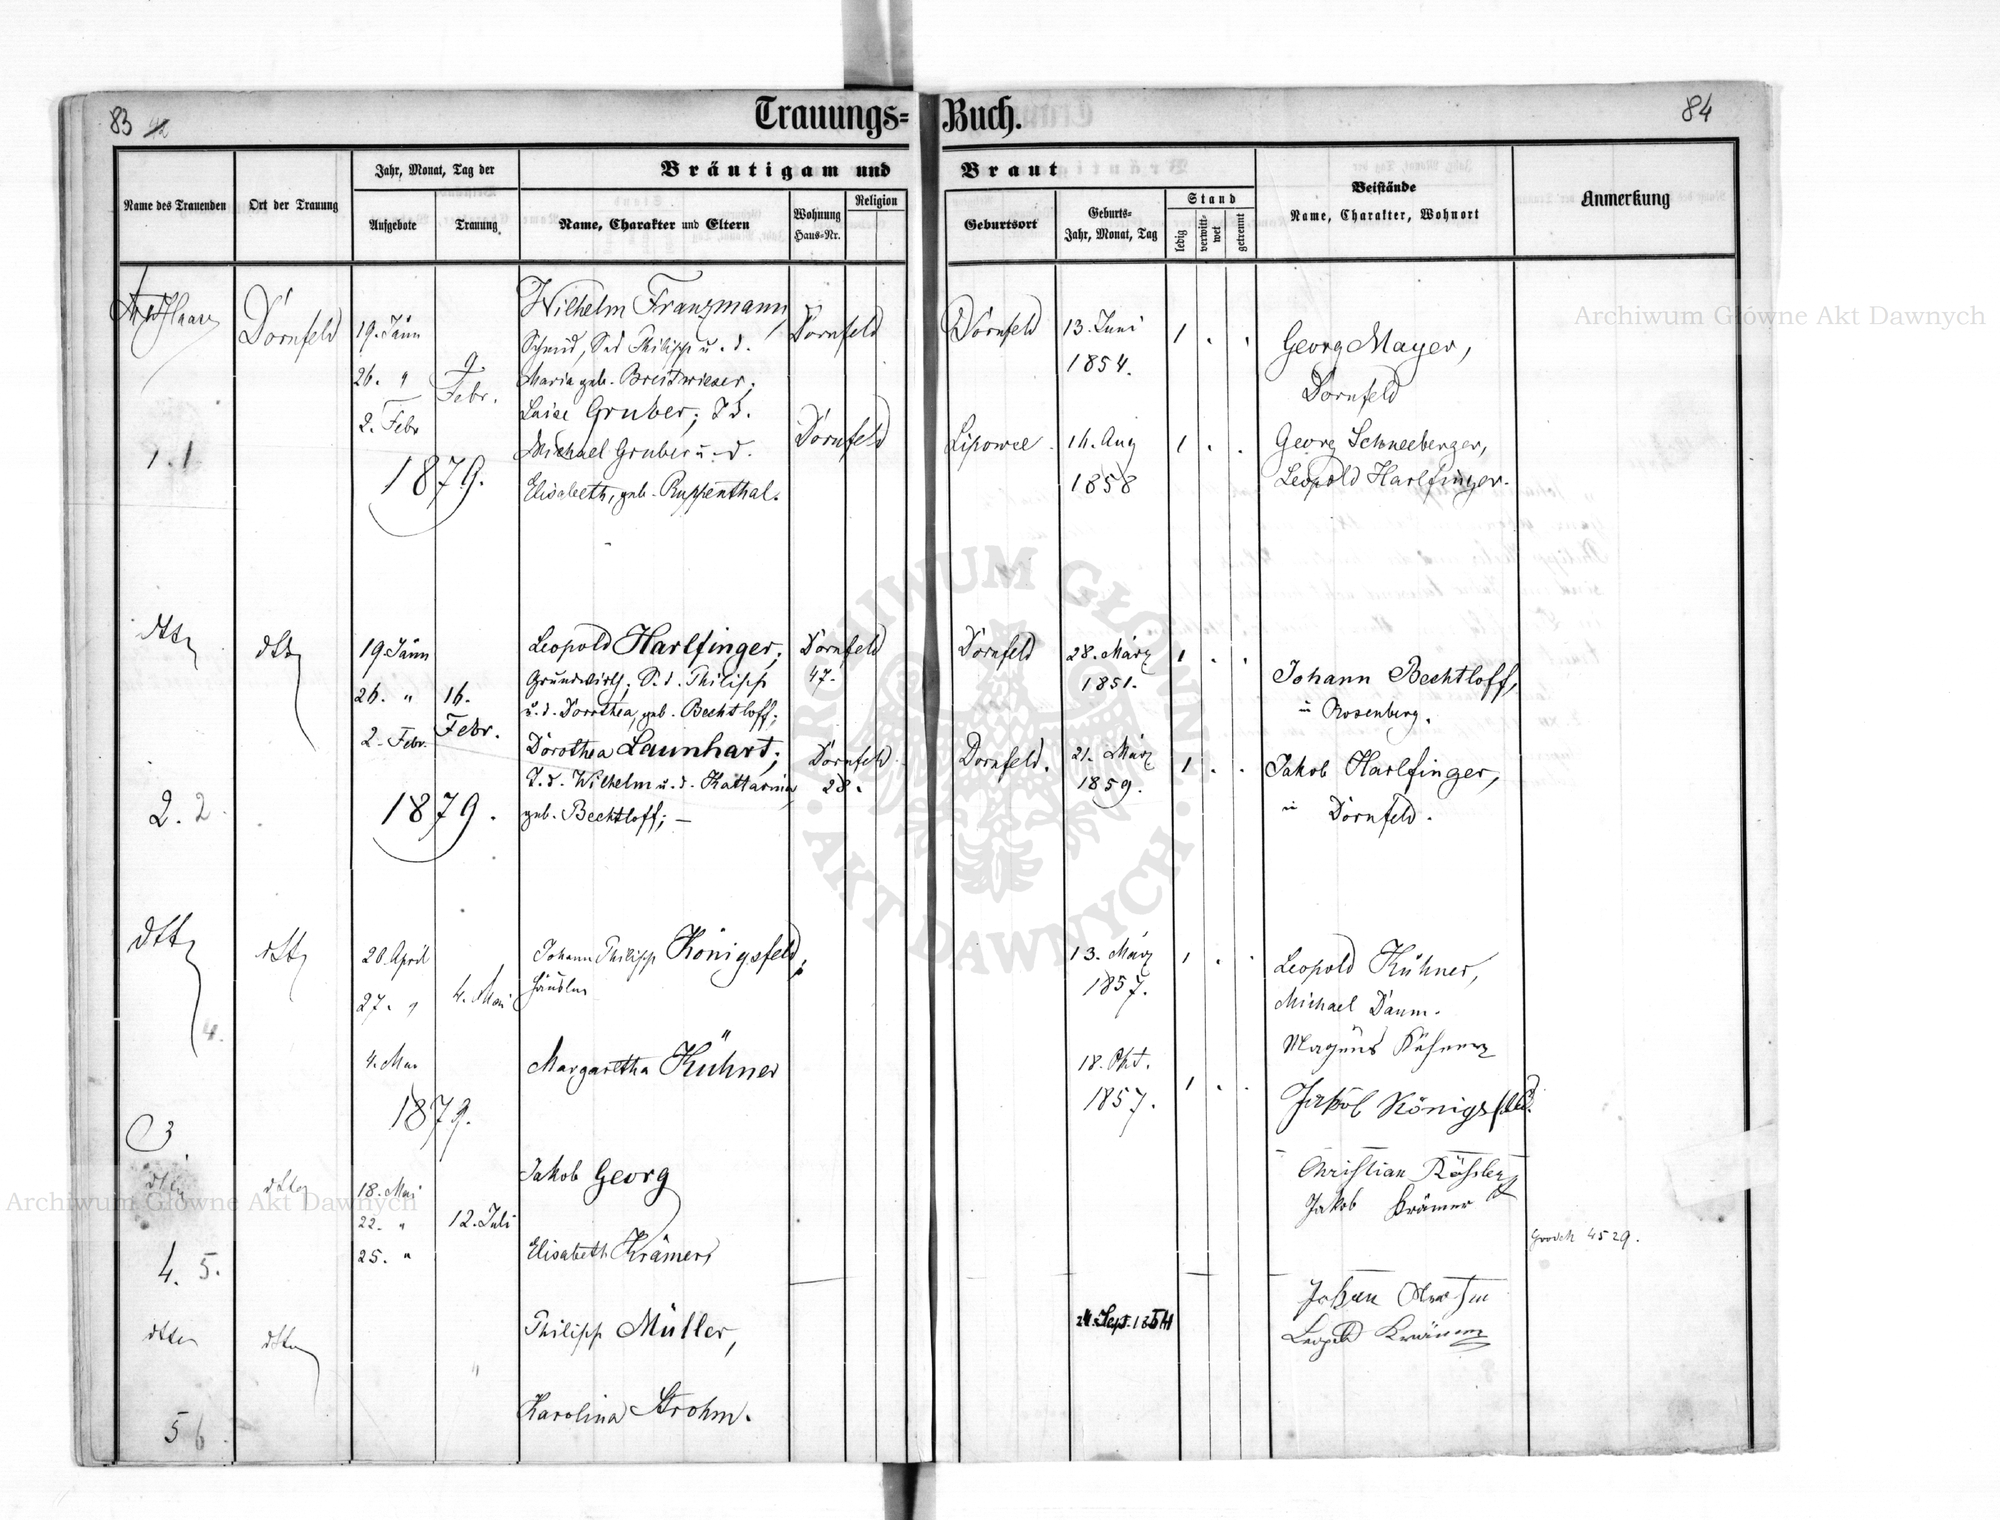 83
84
Trauungs-Buch.
Name des Trauenden
Ort der Trauung
Jahr, Monat, Tag der
Aufgebote
Trauung
Bräutigam und Braut
Name, Charakter und Eltern
Wohnung Haus-Nr.
Religion
Geburtsort
Geburts-
Jahr, Monat, Tag
Stand
ledig
verwitt-
wet
getrennt
Beistände
Name, Charakter, Wohnort
Anmerkung
Dornfeld
19. Jänn
26. "
2. Febr
9
Febr.
1879.
1. 1
Wilhelm Franzmann,
Schmid, S. d. Philipp u. d.
Maria geb. Breitwieser;
Luise Gruber; T. d.
Michael Gruber u. d.
Elisabeth, geb. Ruppenthal.
Dornfeld
Dornfeld
Dornfeld
13. Juni
1854.
1 . .
Lipowce
14. Aug
1858
1 . .
Georg Mayer,
Dornfeld
Georg Schneeberger,
Leopold Harlfinger.
dtto
dtto
19 Jänn
26. "
2. Febr.
16.
Febr.
1879.
2. 2.
Leopold Harlfinger;
Grundwirth; S. d. Philipp
u. d. Dorothea, geb. Bechtloff;
Dorothea Launhart;
T. d. Wilhelm u. d. Katharina
geb. Bechtloff; —
Dornfeld
47.
Dornfeld
28.
Dornfeld
28. März
1851.
1 . .
Dornfeld.
21. März
1859.
1 . .
Johann Bechtloff,
in Rosenberg.
Jakob Harlfinger,
in Dornfeld.
dtto
dtto
20 April
27. "
4. Mai
4. Mai
1879.
4.
3.
Johann Philipp Königsfeld,
Häusler
Margaretha Kühner
13. März
1857.
1 . .
18. Okt.
1857.
1 . .
Leopold Kühner,
Michael Daum.
Magnus Kühner
Jakob Königsfeld.
dtto
dtto
18. Mai
22. "
25. "
12. Juli
4. 5.
Jakob Georg
Elisabeth Krämer,
Christian Rößler
Jakob Krämer
Grodek 4529.
dtto
dtto
5 6.
Philipp Müller,
Karolina Strohm.
24. Sept. 1854
Johann
Leopold Krämer
Archiwum Główne Akt Dawnych
Archiwum Główne Akt Dawnych
ARCHIWUM GŁÓWNE · AKT DAWNYCH ·